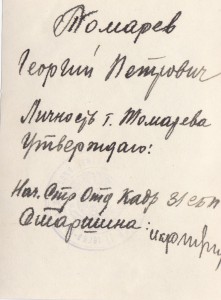 Томарев
Георгий Петрович
Личность т. Томарева
Утверждаю:
Нач. Стр Отд Кадр
Старшина: